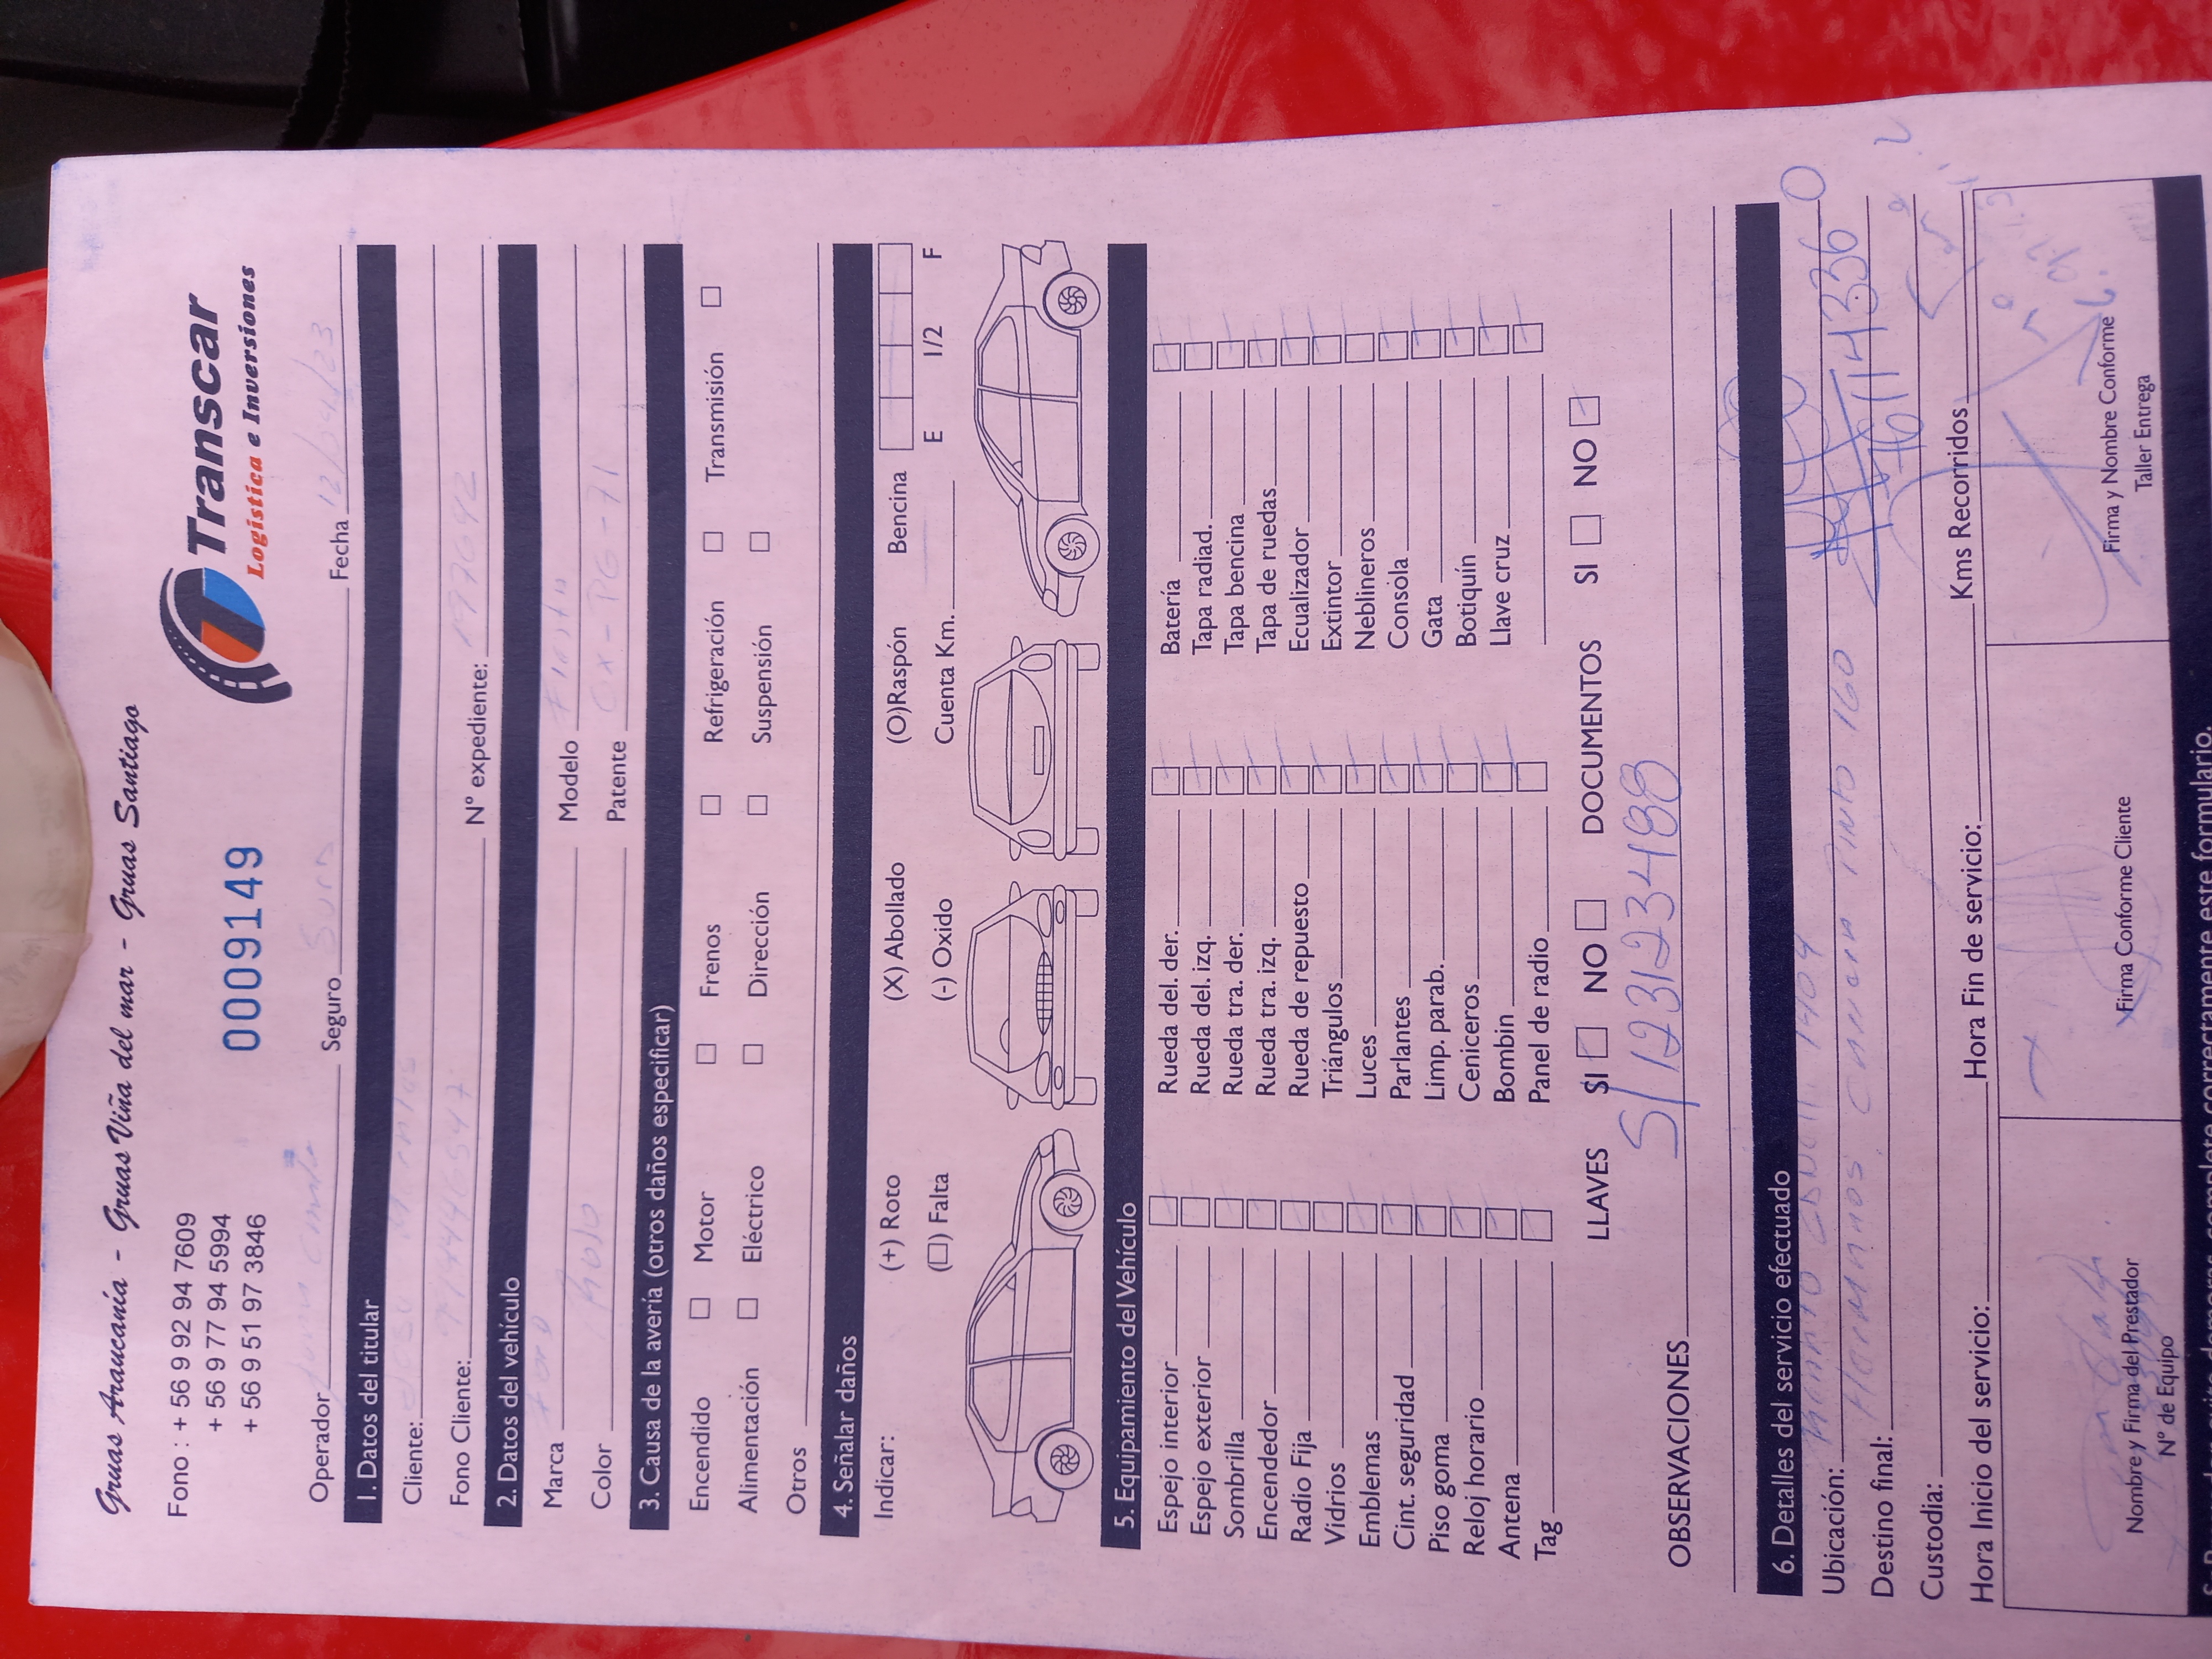 Gruas Araucanía - Gruas Viña del mar - Gruas Santiago
Fono : + 56 9 92 94 7609
+ 56 9 77 94 5994
+ 56 9 51 97 3846
0009149
Transcar
Logística e Inversiones
Operador Seguro Sura Fecha 12/04/23
1. Datos del titular
Cliente:
Fono Cliente: N° expediente:
2. Datos del vehículo
Marca Ford Modelo Fiesta
Color Rojo Patente CX-PG-71
3. Causa de la avería (otros daños especificar)
Encendido Motor Frenos Refrigeración Transmisión
Alimentación Eléctrico Dirección Suspensión
Otros
4. Señalar daños
Indicar: (+) Roto (X) Abollado (O)Raspón Bencina
(□) Falta (-) Oxido Cuenta Km. E 1/2 F
5. Equipamiento del Vehículo
Espejo interior Rueda del. der. Batería
Espejo exterior Rueda del. izq. Tapa radiad.
Sombrilla Rueda tra. der. Tapa bencina
Encendedor Rueda tra. izq. Tapa de ruedas
Radio Fija Rueda de repuesto Ecualizador
Vidrios Triángulos Extintor
Emblemas Luces Neblineros
Cint. seguridad Parlantes Consola
Piso goma Limp. parab. Gata
Reloj horario Ceniceros Botiquín
Antena Bombin Llave cruz
Tag Panel de radio
LLAVES SI NO DOCUMENTOS SI NO
OBSERVACIONES S/12312348
6. Detalles del servicio efectuado
Ubicación: 1404
Destino final: Hermanos Pinto 160
Custodia:
Hora Inicio del servicio: Hora Fin de servicio: Kms Recorridos
Nombre y Firma del Prestador
N° de Equipo
Firma Conforme Cliente
Firma y Nombre Conforme
Taller Entrega
correctamente este formulario.